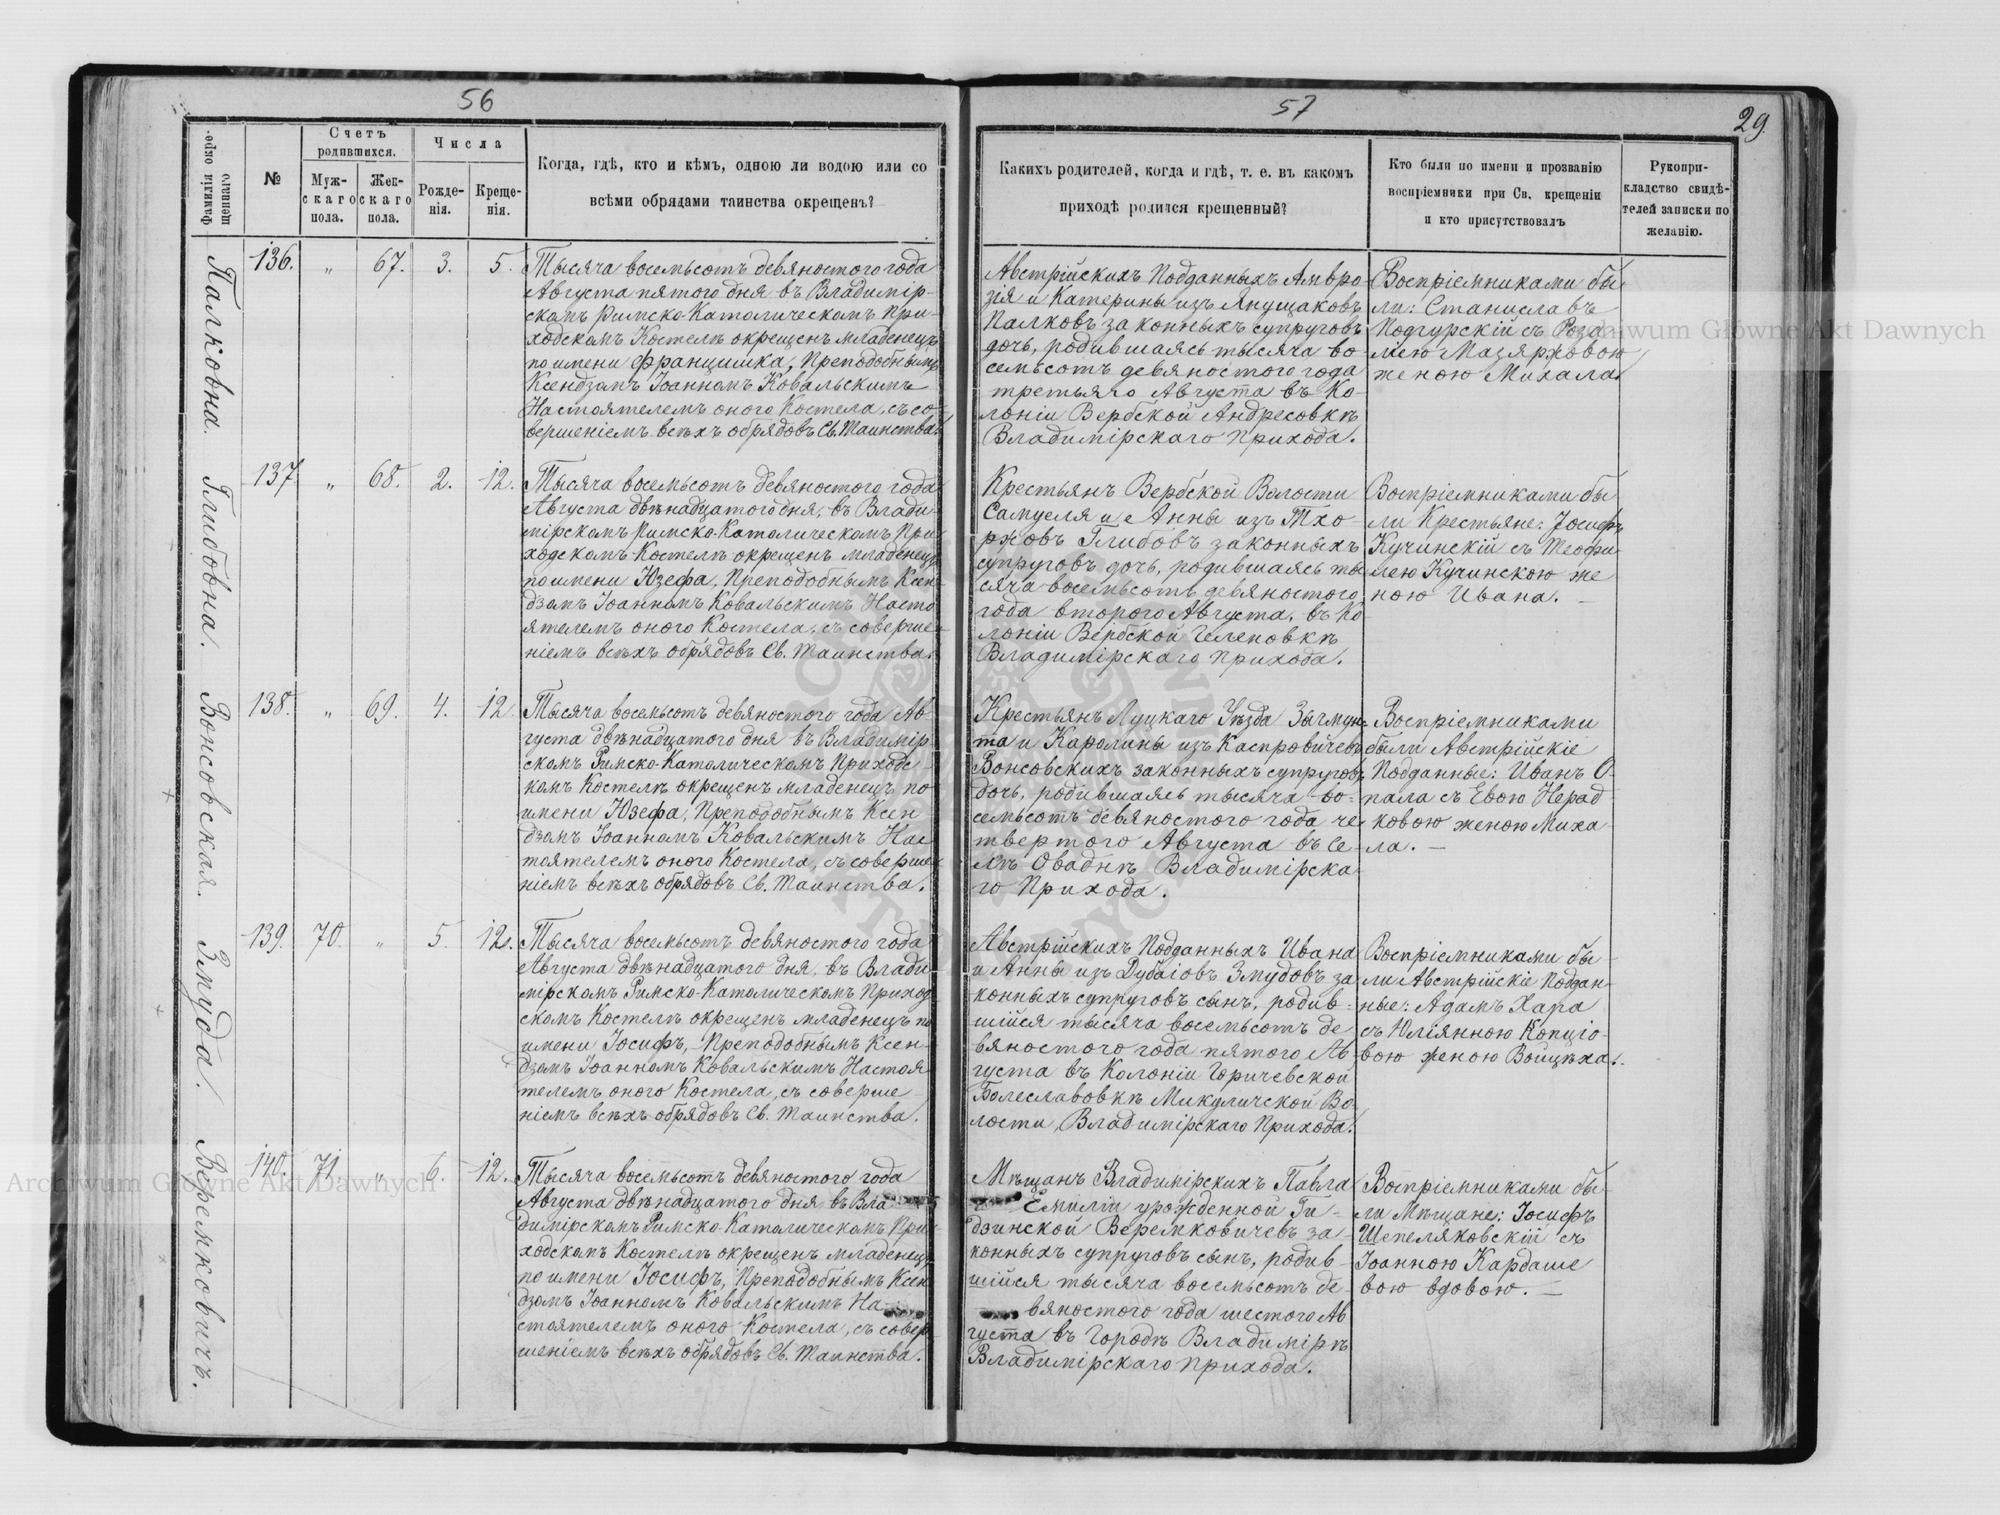 56
57
29.
Фамилія окре-
щеннаго
№
Счетъ
родившихся.
Муж-
скаго
пола.
Жен-
скаго
пола.
Числа
Рожде-
нія.
Креще-
нія.
Когда, гдѣ, кто и кѣмъ, одною ли водою или со
всѣми обрядами таинства окрещенъ?
Какихъ родителей, когда и гдѣ, т. е. въ какомъ
приходѣ родился крещенный?
Кто были по имени и прозванію
воспріемники при Св. крещеніи
и кто присутствовалъ
Рукопри-
кладство свидѣ-
телей записки по
желанію.
Палковна.
136. " 67. 3. 5.
Тысяча восемьсотъ девяностого года
Августа пятого дня въ Владимір-
скомъ Римско-Католическомъ При-
ходскомъ Костелѣ окрещенъ младенецъ
по имени Францишка, Преподобнымъ
Ксендзомъ Іоанномъ Ковальскимъ
Настоятелемъ оного Костела, съ со-
вершеніемъ всѣхъ обрядовъ Св. Таинства.
Австрійскихъ Подданныхъ Амвро-
зія и Катерины изъ Янущаковъ
Палковъ законныхъ супруговъ
дочь, родившаяся тысяча во-
семьсотъ девяностого года
третьяго Августа въ Ко-
лоніи Вербской Андресовкѣ
Владимірскаго Прихода.
Воспріемниками бы-
ли: Станиславъ
Подгурскій съ Роза
ліею Мазяржовою
женою Михала.
Глибовна.
137. " 68. 2. 12.
Тысяча восемьсотъ девяностого года
Августа двѣнадцатого дня, въ Влади-
мірскомъ Римско-Католическомъ При-
ходскомъ Костелѣ окрещенъ младенецъ
по имени Юзефа, Преподобнымъ Ксен-
дзомъ Іоанномъ Ковальскимъ Насто
ятелемъ оного Костела, съ соверше-
ніемъ всѣхъ обрядовъ Св. Таинства.
Крестьянъ Вербской Волости
Самуеля и Анны изъ Тхо-
ржовъ Глибовъ законныхъ
супруговъ дочь, родившаяся ты
сяча восемьсотъ девяностого
года второго Августа, въ Ко-
лоніи Вербской Геленовкѣ
Владимірскаго Прихода.
Воспріемниками бы
ли Крестьяне: Іосифъ
Кучинскій съ Теофи
лею Кучинскою же
ною Ивана. –
Вонсовская.
138. " 69. 4. 12.
Тысяча восемьсотъ девяностого года Ав-
густа двѣнадцатого дня въ Владимір
скомъ Римско-Католическомъ Приходс-
комъ Костелѣ окрещенъ младенецъ по
имени Юзефа, Преподобнымъ Ксен-
дзомъ Іоанномъ Ковальскимъ Нас
тоятелемъ оного Костела, съ соверше-
ніемъ всѣхъ обрядовъ Св. Таинства.
Крестьянъ Луцкаго Уѣзда Зыгмун-
та и Каролины изъ Каспровичевъ
Вонсовскихъ законныхъ супруговъ
дочь, родившаяся тысяча во-
семьсотъ девяностого года че-
твертого Августа въ Се-
лѣ Оваднѣ Владимірска
го Прихода.
Воспріемниками
были Австрійскіе
Подданные: Иванъ О-
пала съ Евою Нерад
ковою женою Миха
ла. –
Змуда.
139. 70. " 5. 12.
Тысяча восемьсотъ девяностого года
Августа двѣнадцатого дня, въ Влади
мірскомъ Римско-Католическомъ Приход-
скомъ Костелѣ окрещенъ младенецъ по
имени Іосифъ, Преподобнымъ Ксен-
дзомъ Іоанномъ Ковальскимъ Настоя
телемъ оного Костела, съ соверше-
ніемъ всѣхъ обрядовъ Св. Таинства.
Австрійскихъ Подданныхъ Ивана
и Анны изъ Дубаіовъ Змудовъ за
конныхъ супруговъ сынъ, родив-
шійся тысяча восемьсотъ де
вяностого года пятого Ав
густа въ Колоніи Горичевской
Болеславовкѣ Микуличской Во-
лости, Владимірскаго Прихода.
Воспріемниками бы-
ли Австрійскіе Поддан-
ные: Адамъ Хара
съ Юліянною Копціо-
вою женою Войцѣха.
Веремковичъ.
140. 71. " 6. 12.
Тысяча восемьсотъ девяностого года
Августа двѣнадцатого дня въ Вла
димірскомъ Римско-Католическомъ При-
ходскомъ Костелѣ окрещенъ младенецъ
по имени Іосифъ, Преподобнымъ Ксен
дзомъ Іоанномъ Ковальскимъ На-
стоятелемъ оного Костела, съ совер-
шеніемъ всѣхъ обрядовъ Св. Таинства.
Мѣщанъ Владимірскихъ Павла
Емиліи урожденной Ги-
дзинской Веремковичевъ за-
конныхъ супруговъ сынъ, родив-
шійся тысяча восемьсотъ де-
вяностого года шестого Ав
густа въ Городѣ Владимірѣ
Владимірскаго Прихода.
Воспріемниками бы-
ли Мѣщане: Іосифъ
Шепеляковскій съ
Іоанною Кардаше
вою вдовою. –
Archiwum Główne Akt Dawnych
Archiwum Główne Akt Dawnych